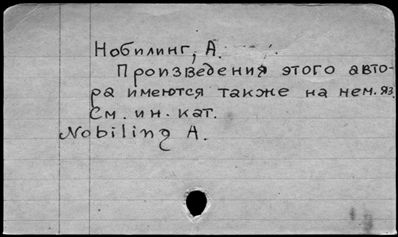 Нобилинг, А.
Произведения этого авто-
ра имеются также на нем. яз.
См. ин. кат.
Nobiling A.